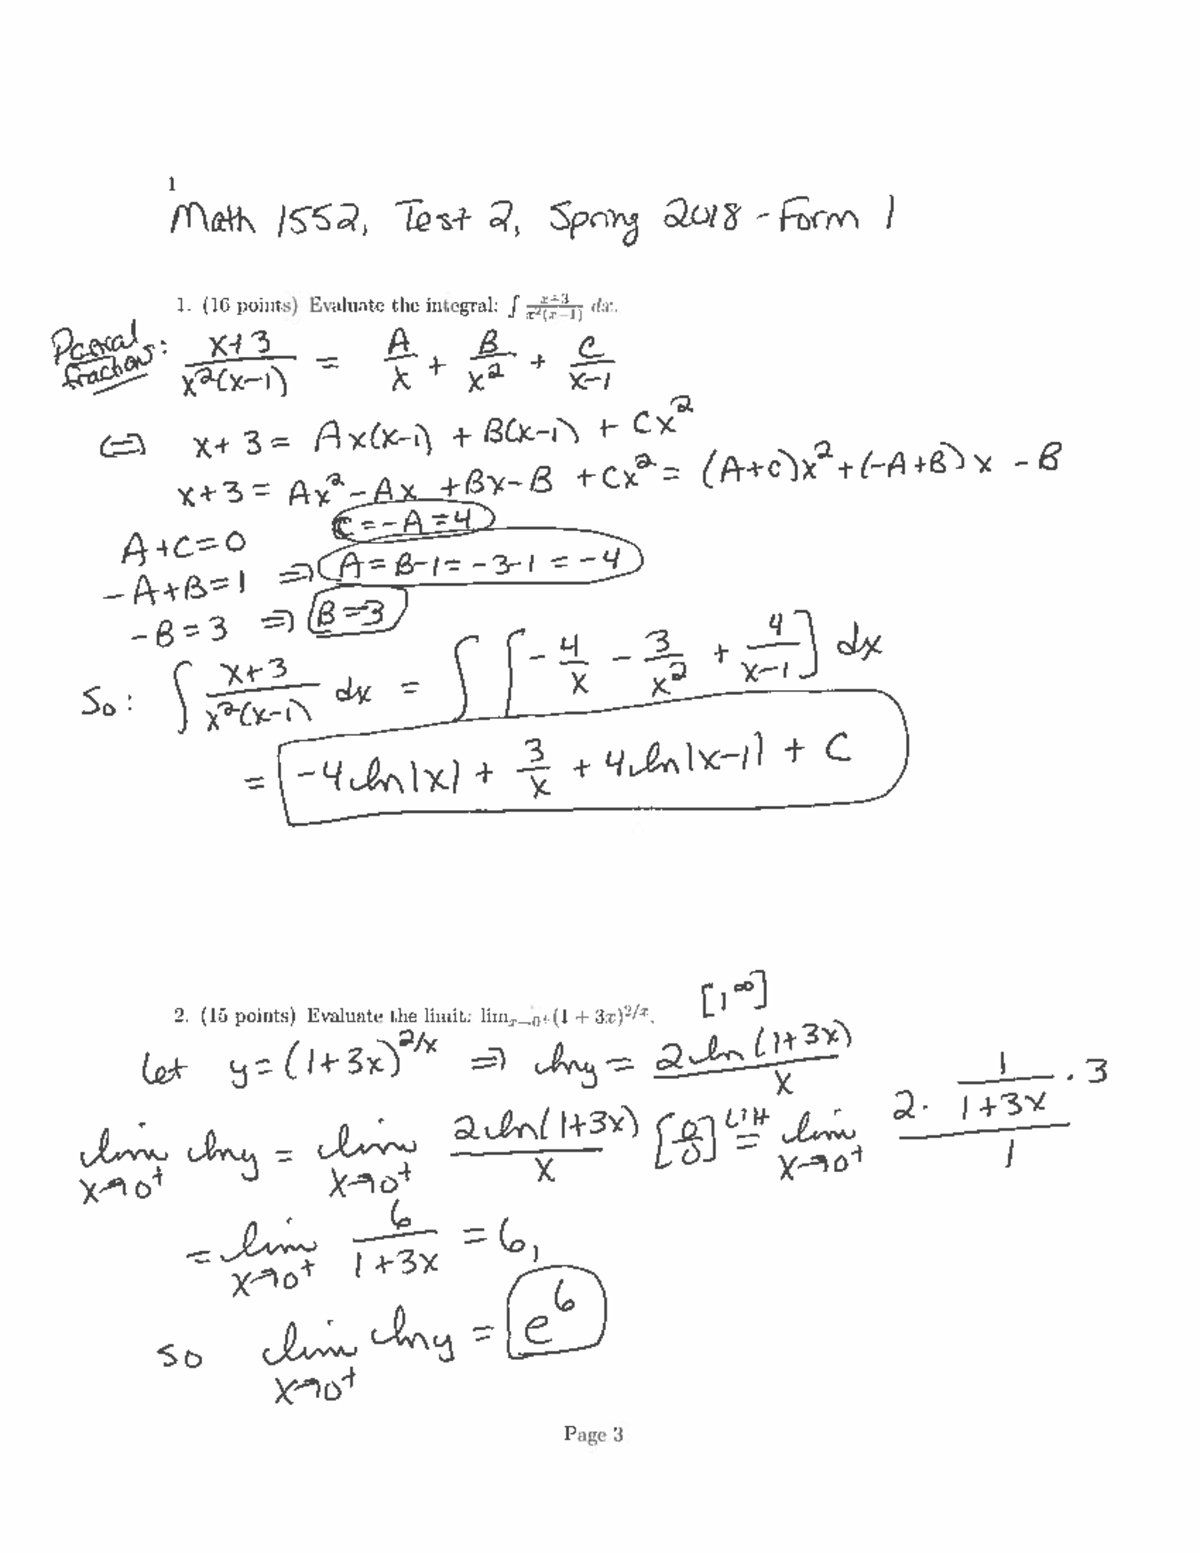 1
Math 1552, Test 2, Spring 2018 - Form 1
1. (16 points) Evaluate the integral: ∫ (x+3)/(x²(x−1)) dx.
Partial fractions: (x+3)/(x²(x−1)) = A/x + B/x² + C/(x−1)
⟺ x+3 = Ax(x−1) + B(x−1) + Cx²
x+3 = Ax² − Ax + Bx − B + Cx² = (A+C)x² + (−A+B)x − B
A+C=0 C = −A = 4
−A+B=1 ⇒ A = B−1 = −3−1 = −4
−B=3 ⇒ B=3
So: ∫ (x+3)/(x²(x−1)) dx = ∫ [−4/x − 3/x² + 4/(x−1)] dx
= −4 ln|x| + 3/x + 4 ln|x−1| + C
2. (15 points) Evaluate the limit: lim x→0⁺ (1 + 3x)^(2/x). [1^∞]
Let y = (1+3x)^(2/x) ⇒ ln y = 2 ln(1+3x)/x
lim x→0⁺ ln y = lim x→0⁺ 2 ln(1+3x)/x [0/0] L'H = lim x→0⁺ (2 · 1/(1+3x) · 3)/1
= lim x→0⁺ 6/(1+3x) = 6,
so lim x→0⁺ ln y = e⁶
Page 3